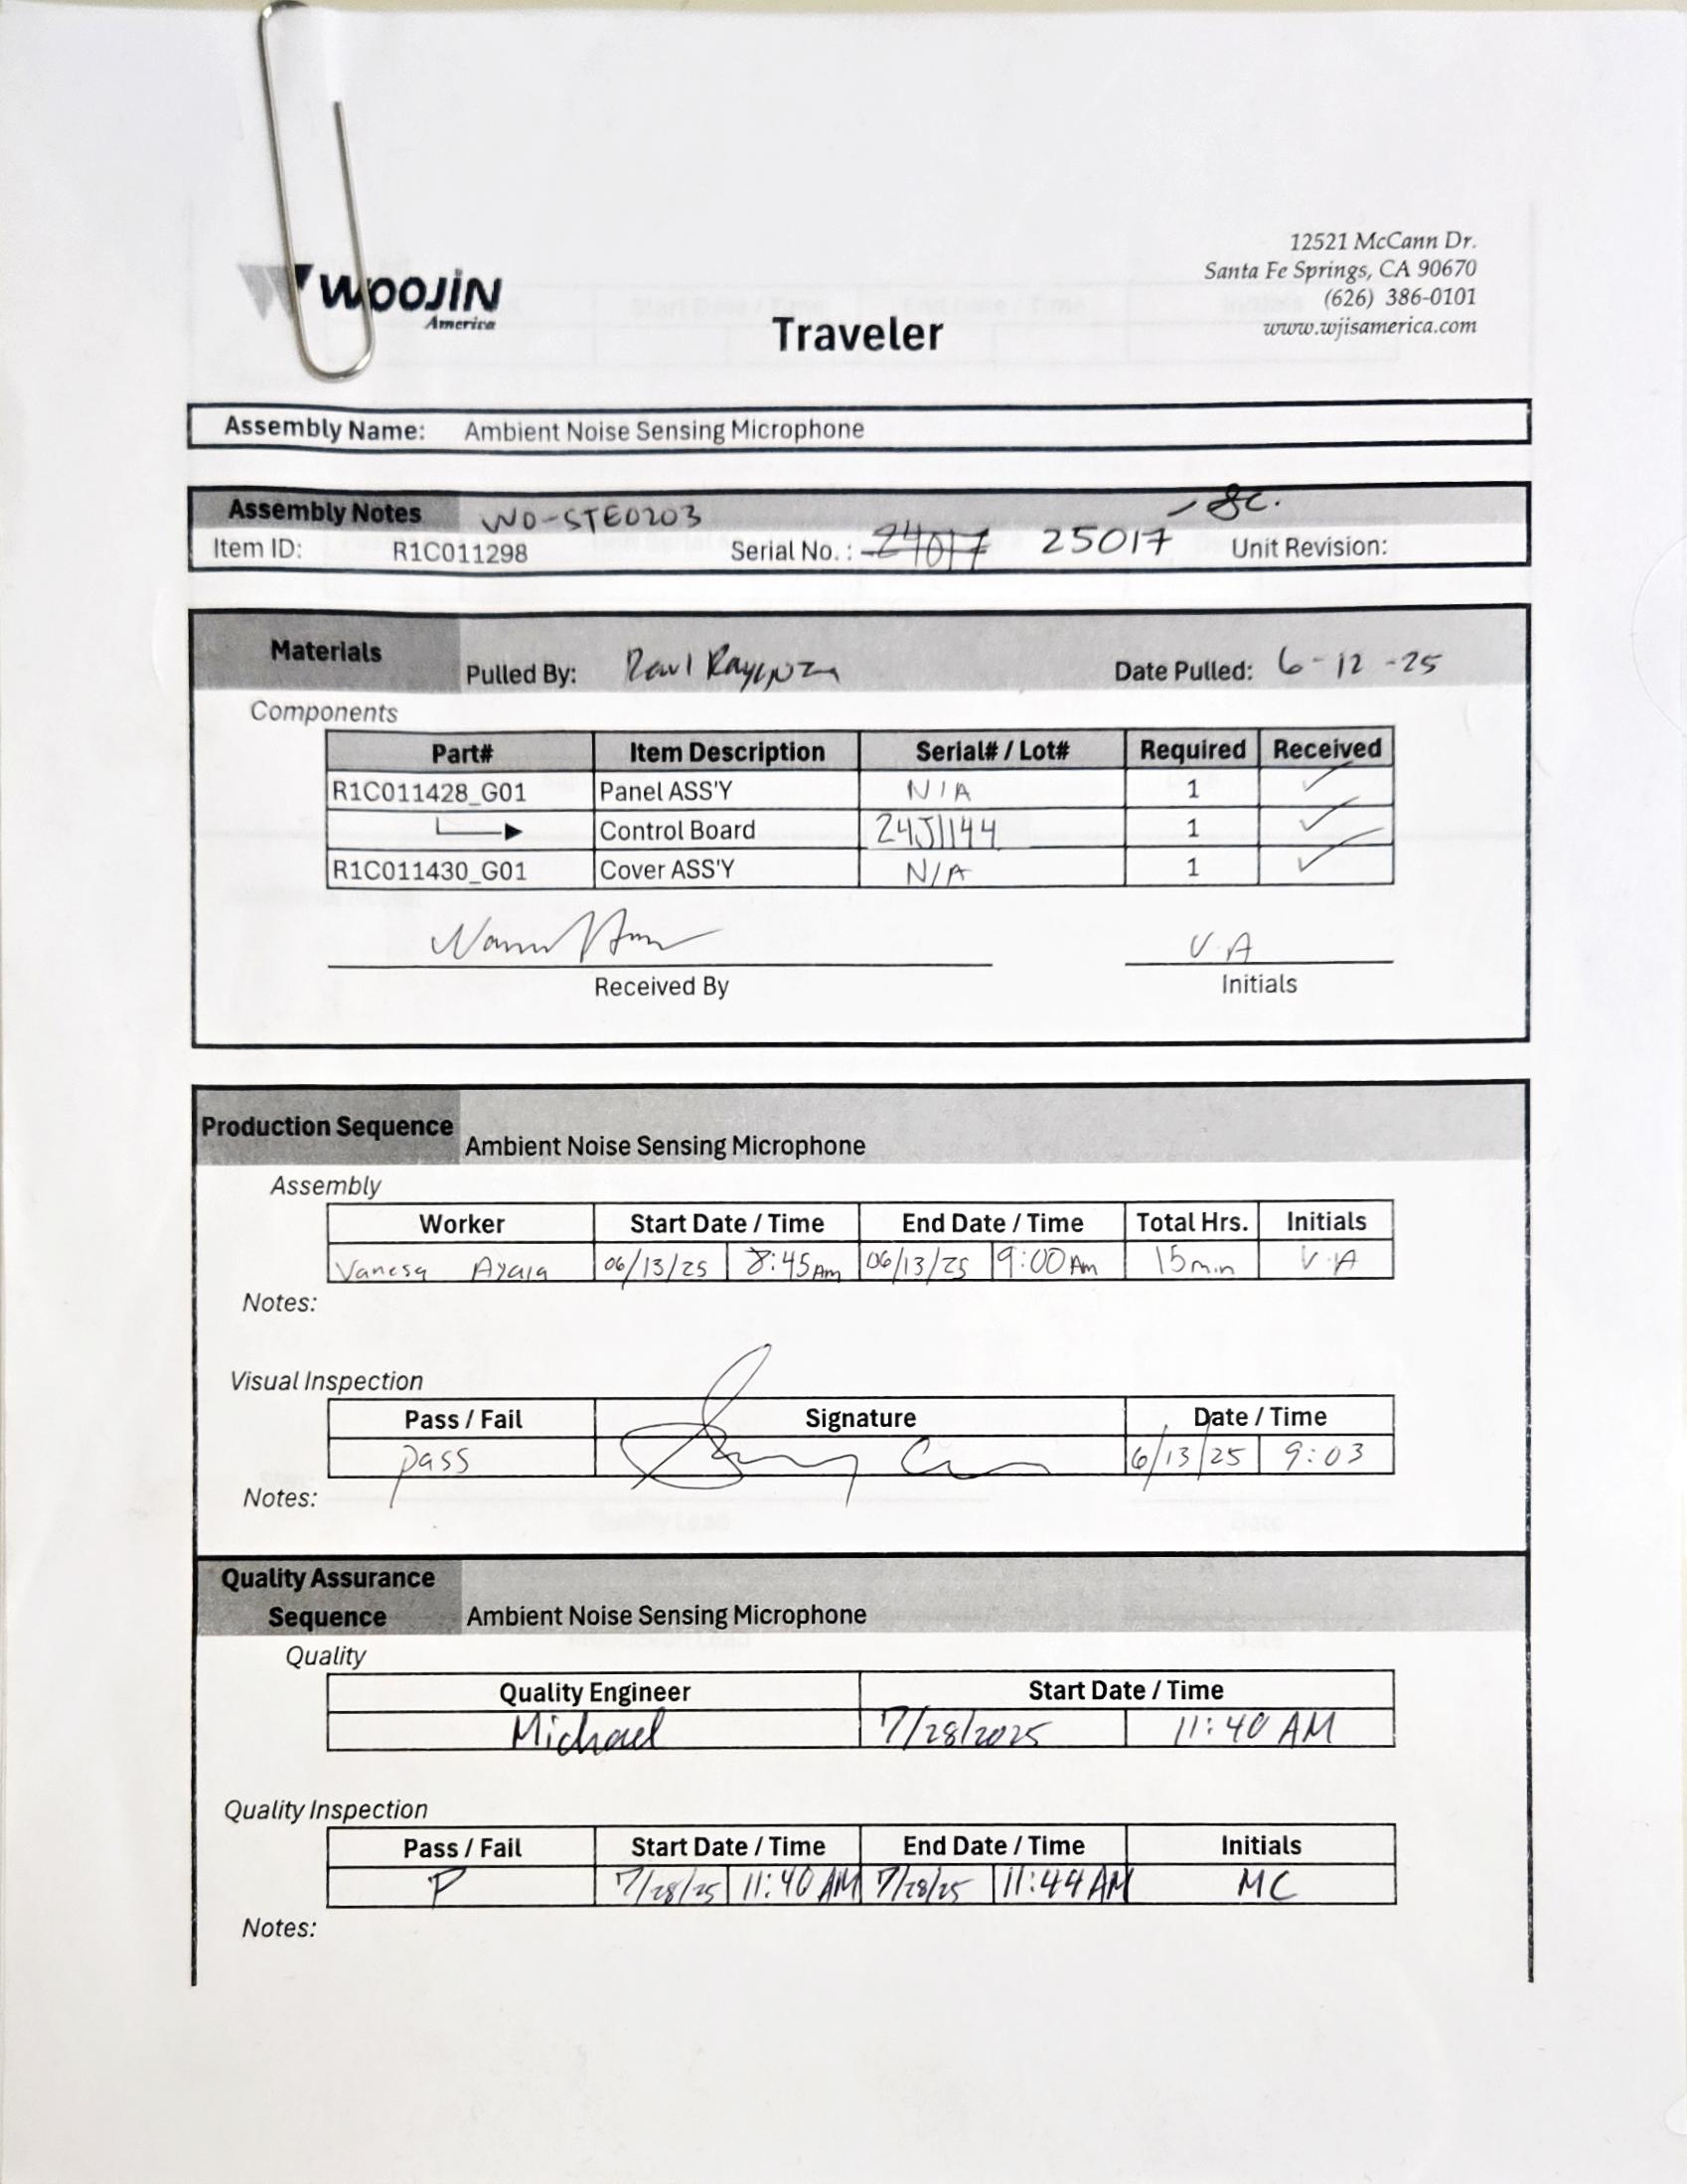 12521 McCann Dr.
Santa Fe Springs, CA 90670
(626) 386-0101
www.wjisamerica.com
WOOJIN
America
Traveler
Assembly Name: Ambient Noise Sensing Microphone
Assembly Notes WO-STE0203
Item ID: R1C011298 Serial No.: 24017 25017 - SC. Unit Revision:
Materials Pulled By: Date Pulled: 6-12-25
Components
Part# Item Description Serial# / Lot# Required Received
R1C011428_G01 Panel ASS'Y N/A 1 ✓
Control Board 24J1144 1 ✓
R1C011430_G01 Cover ASS'Y N/A 1 ✓
V.A
Received By Initials
Production Sequence Ambient Noise Sensing Microphone
Assembly
Worker Start Date / Time End Date / Time Total Hrs. Initials
Vanesa Ayala 06/13/25 8:45Am 06/13/25 9:00Am 15min V.A
Notes:
Visual Inspection
Pass / Fail Signature Date / Time
pass 6/13/25 9:03
Notes:
Quality Assurance
Sequence Ambient Noise Sensing Microphone
Quality
Quality Engineer Start Date / Time
Michael 7/28/2025 11:40 AM
Quality Inspection
Pass / Fail Start Date / Time End Date / Time Initials
P 7/28/25 11:40 AM 7/28/25 11:44 AM MC
Notes: